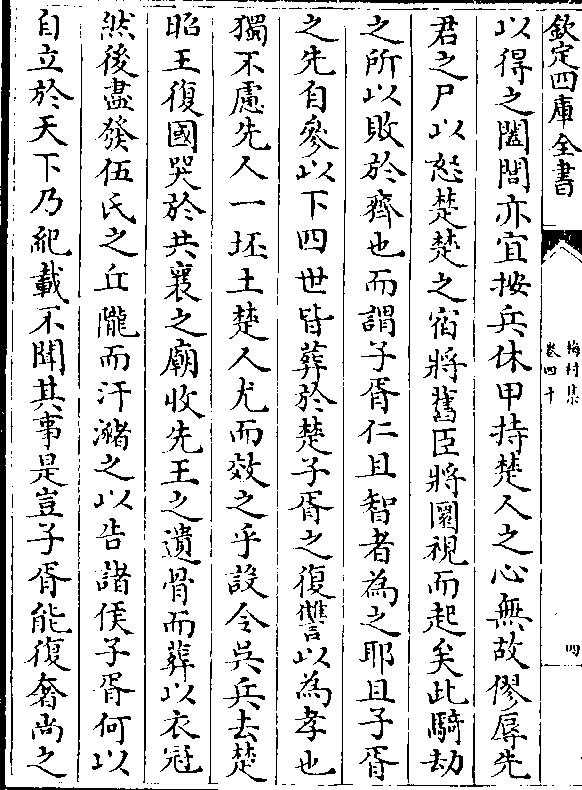 欽定四庫全書
梅村集
卷四十
四
以得之闔閭亦宜按兵休甲持楚人之心無故僇辱先
君之尸以怒楚楚之宿將舊臣將圜視而起矣此騎劫
之所以敗於齊也而謂子胥仁且智者為之耶且子胥
之先自參以下四世皆葬於楚子胥之復讐以為孝也
獨不慮先人一坯土楚人尤而效之乎設令吳兵去楚
昭王復國哭於共襄之廟收先王之遺骨而葬以衣冠
然後盡發伍氏之丘隴而汙瀦之以告諸侯子胥何以
自立於天下乃紀載不聞其事是豈子胥能復奢尚之